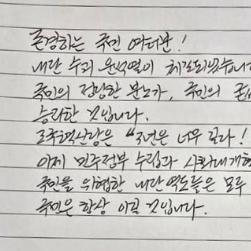 존경하는 국민 여러분!
내란 수괴 윤석열이 체포되었습니다
국민의 정당한 분노가, 국민의
승리한 것입니다.
"3년은 너무 길다!
이제 민주정부 수립과 사회대개혁
국민을 위협한 내란 역도들은 모두
국민은 항상 이길 것입니다.